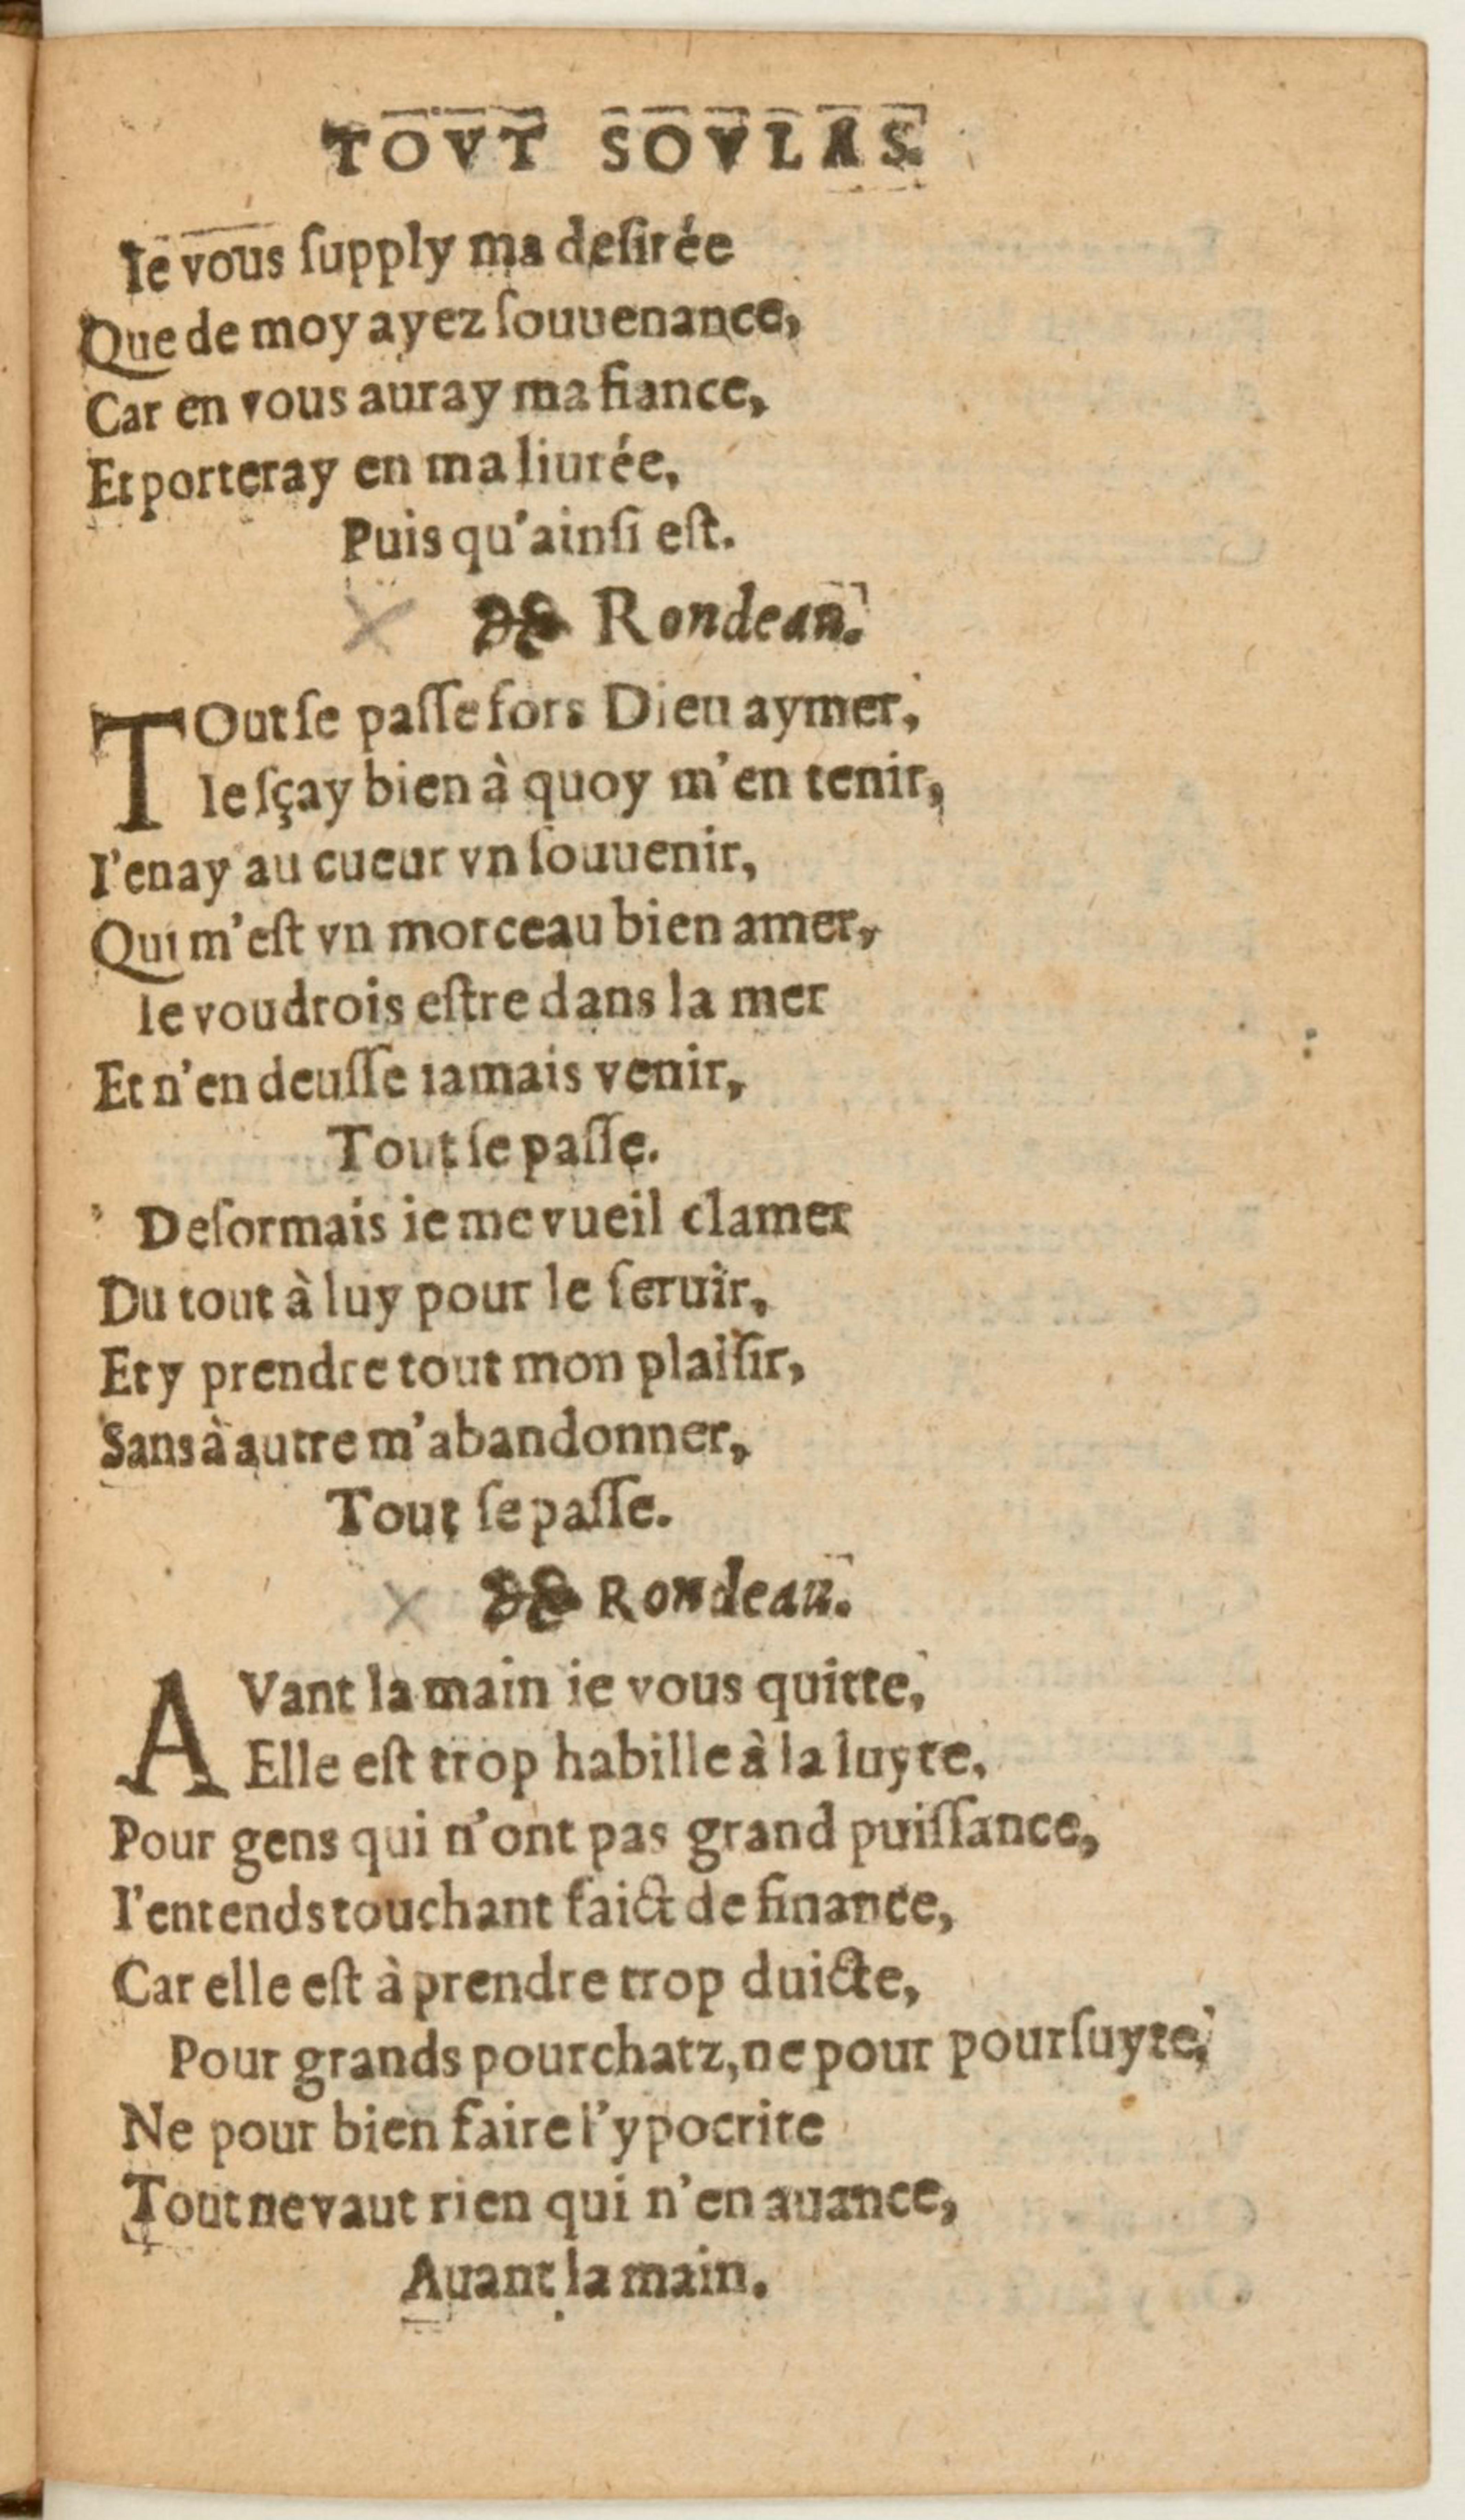 TOVT SOVLAS.
Ie vous ſupply ma deſirée
Que de moy ayez ſouuenance,
Car en vous auray ma fiance,
Et porteray en ma liurée,
Puis qu'ainſi eſt.
Rondeau.
TOut ſe paſſe fors Dieu aymer,
Ie ſçay bien à quoy m'en tenir,
I'en ay au cueur vn ſouuenir,
Qui m'eſt vn morceau bien amer,
Ie voudrois eſtre dans la mer
Et n'en deuſſe iamais venir,
Tout ſe paſſe.
Deſormais ie me vueil clamer
Du tout à luy pour le ſeruir,
Et y prendre tout mon plaiſir,
Sans à autre m'abandonner,
Tout ſe paſſe.
Rondeau.
AVant la main ie vous quitte,
Elle eſt trop habille à la luyte,
Pour gens qui n'ont pas grand puiſſance,
I'entends touchant faict de finance,
Car elle eſt à prendre trop duicte,
Pour grands pourchatz, ne pour pourſuyte,
Ne pour bien faire l'ypocrite
Tout ne vaut rien qui n'en auance,
Auant la main.